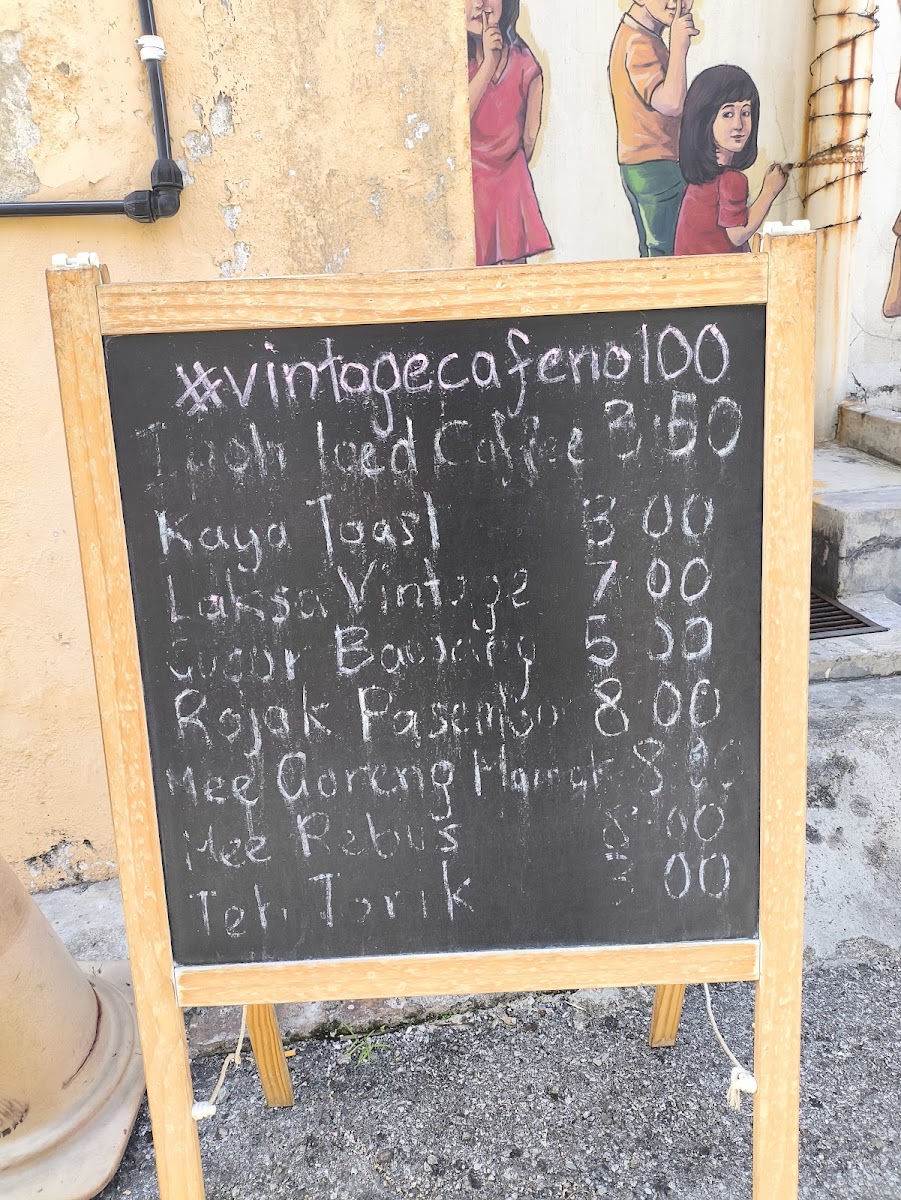 #vintagecafeno100
Ipoh Iced Coffee 3.50
Kaya Toast 3 00
Laksa Vintage 7 00
Cucur Bawang 5 00
Rojak Pasembor 8 00
Mee Goreng Mamak 8 00
Mee Rebus 8 00
Teh Tarik 00